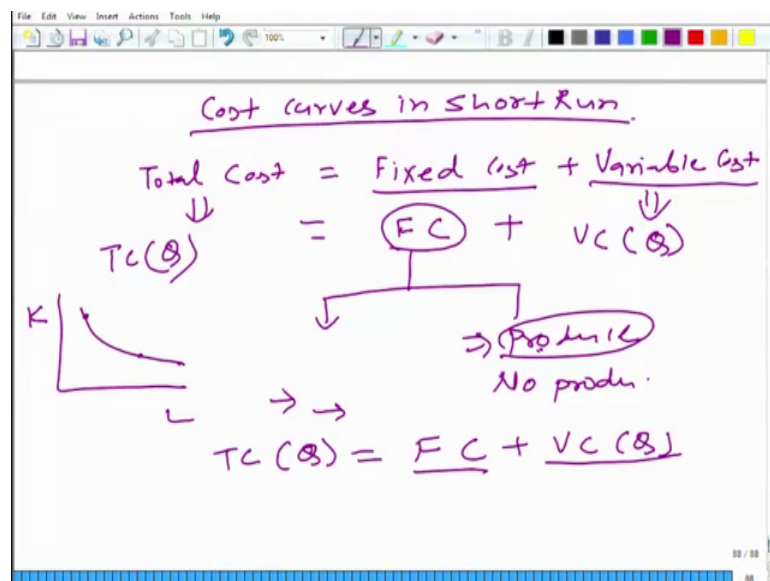 File Edit View Insert Actions Tools Help
100%
Cost curves in short Run.
Total Cost = Fixed Cost + Variable Cost
TC(Q) = FC + VC(Q)
K
⇒ Produce
No produ.
L
TC(Q) = FC + VC(Q)
88 / 88
88